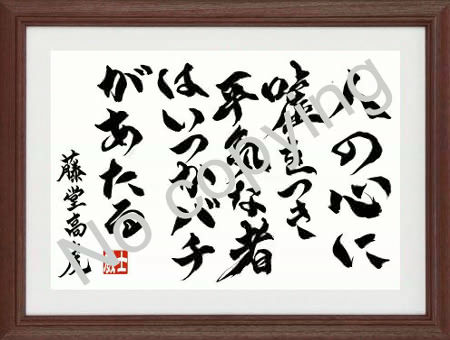 人の心に
嘘をつき
平気な者
はいつかバチ
があたる
藤堂高虎
No copying